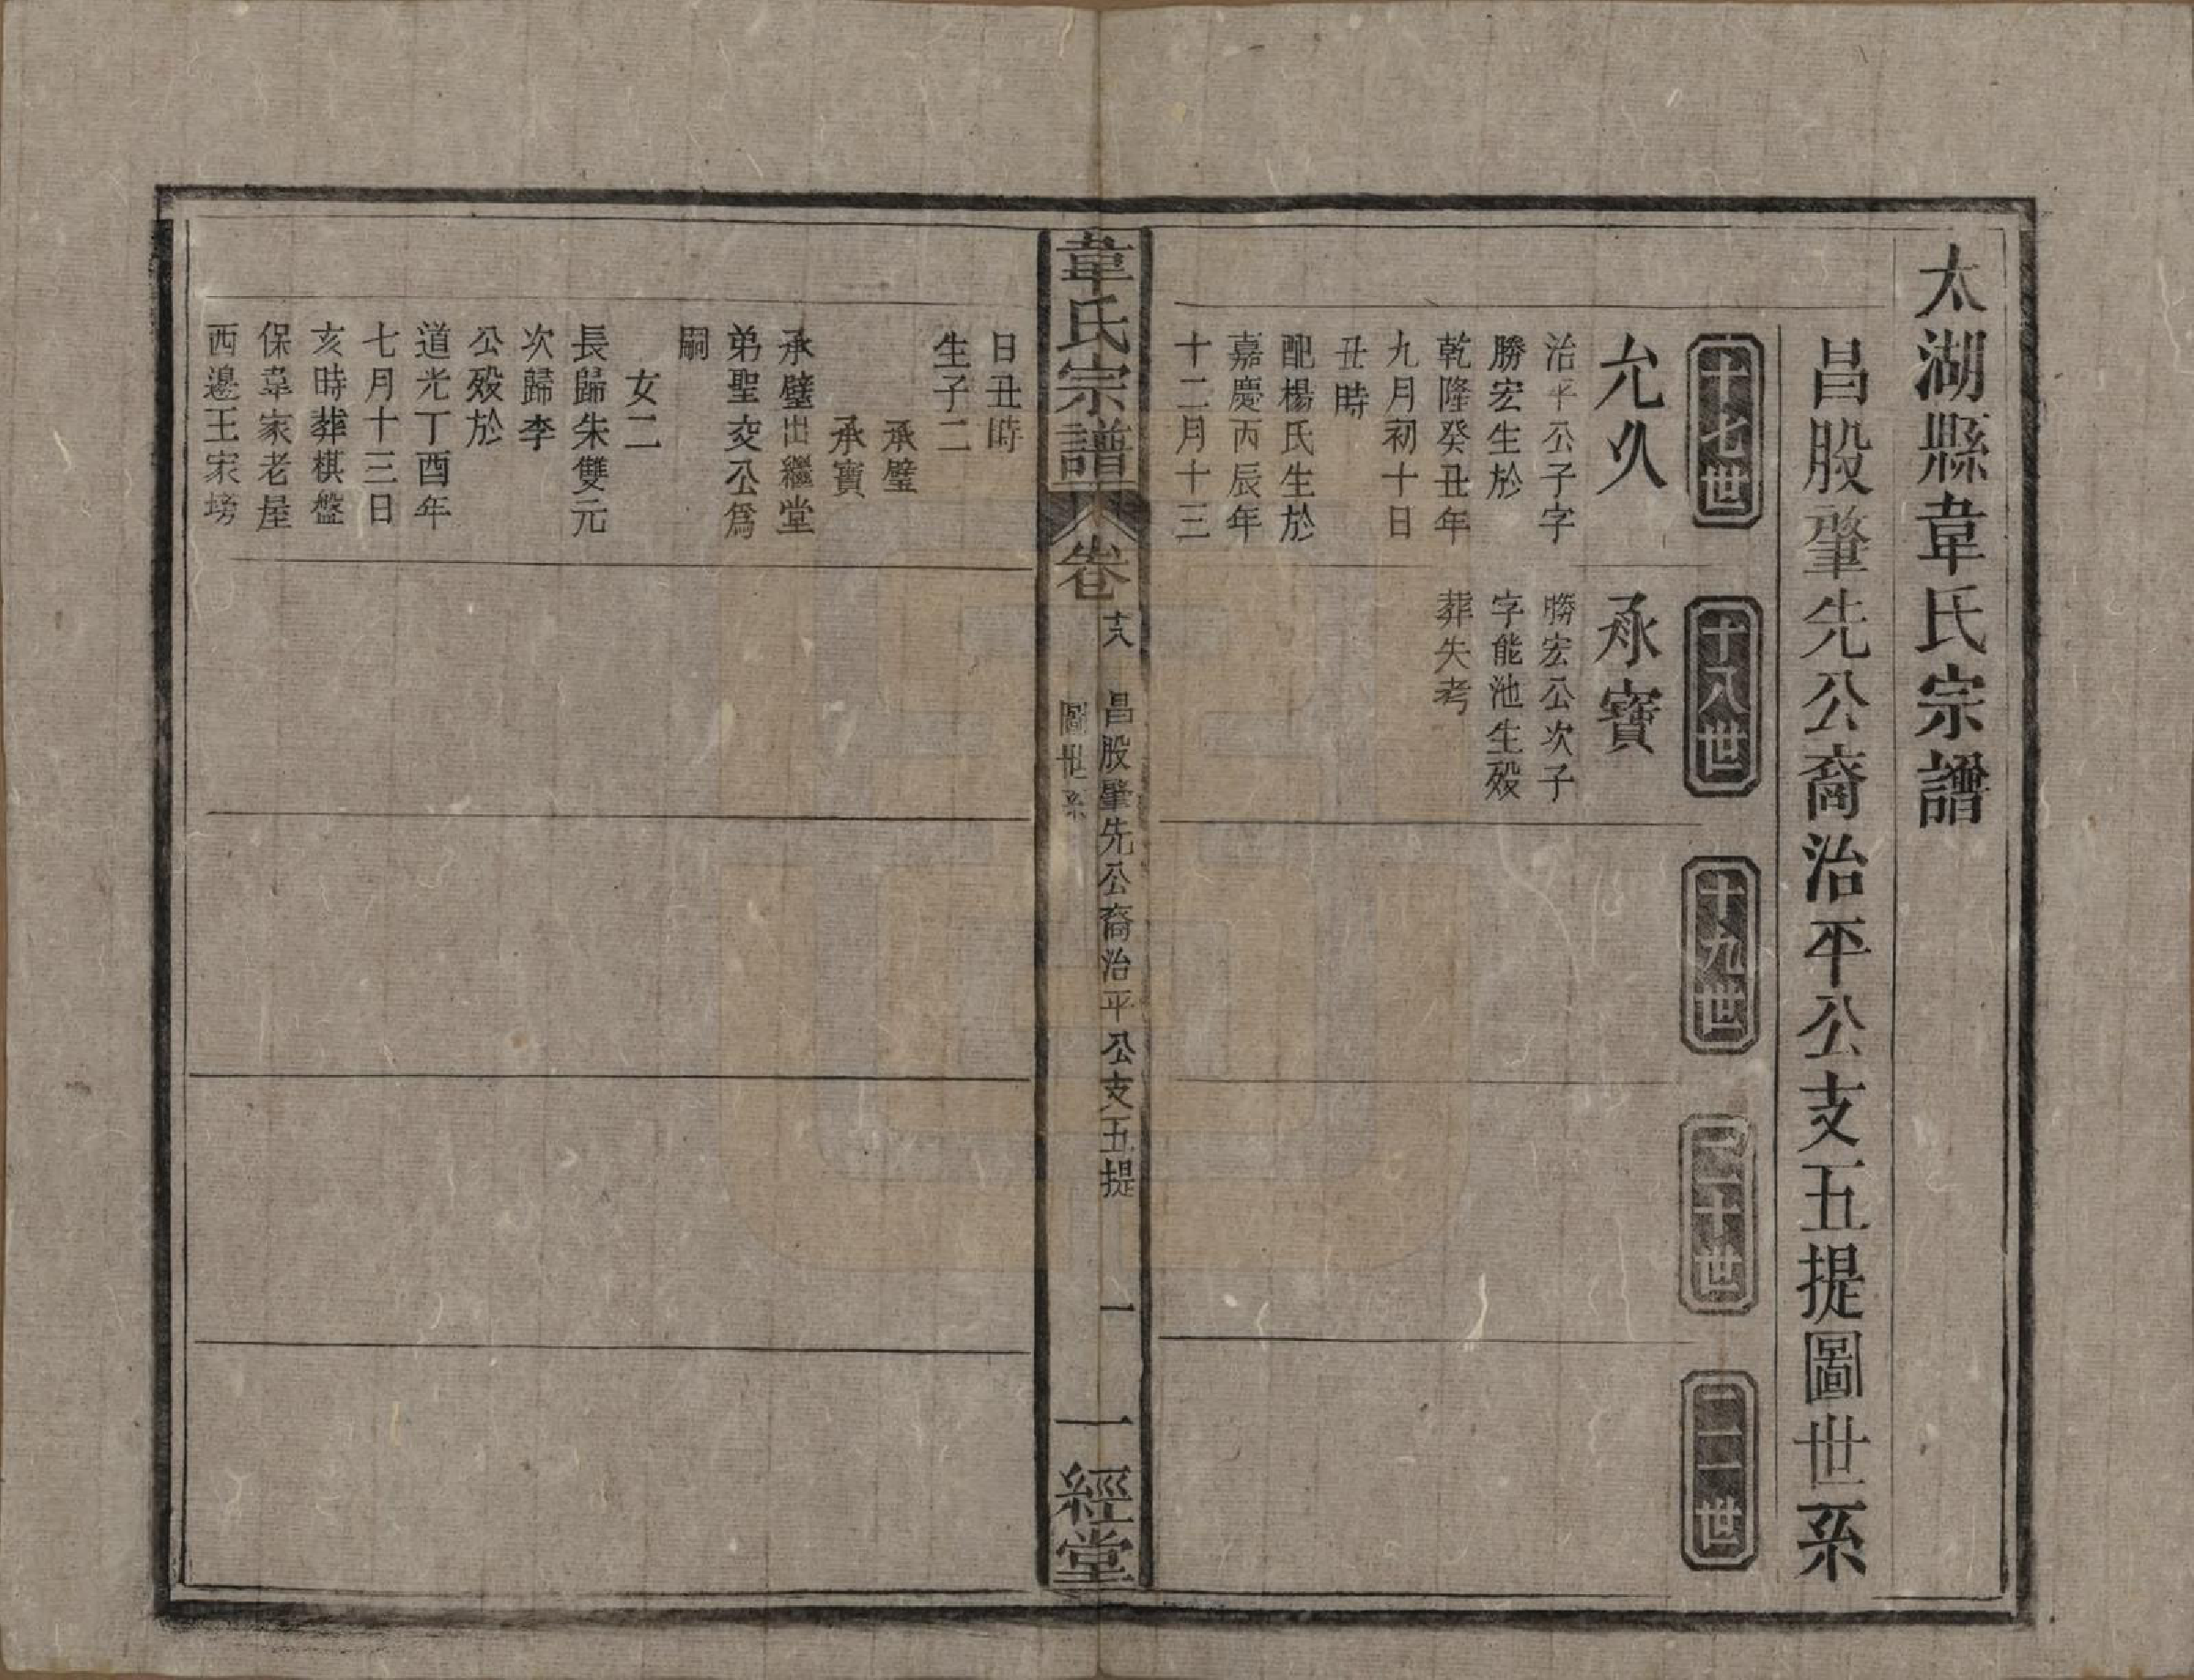 太湖縣韋氏宗譜
昌股肇先公裔治平公支五提圖世系
十七世
十八世
十九世
二十世
二一世
允久
治平公子字
勝宏生於
乾隆癸丑年
九月初十日
丑時
配楊氏生於
嘉慶丙辰年
十二月十三
承寶
勝宏公次子
字能池生殁
葬失考
韋氏宗譜
卷
十八
昌股肇先公裔治平公支五提
圖世系
一
一經堂
日丑時
生子二
承璧
承寶
承璧出繼堂
弟聖交公爲
嗣
女二
長歸朱雙元
次歸李
公殁於
道光丁酉年
七月十三日
亥時葬棋盤
保韋家老屋
西邊王家塝